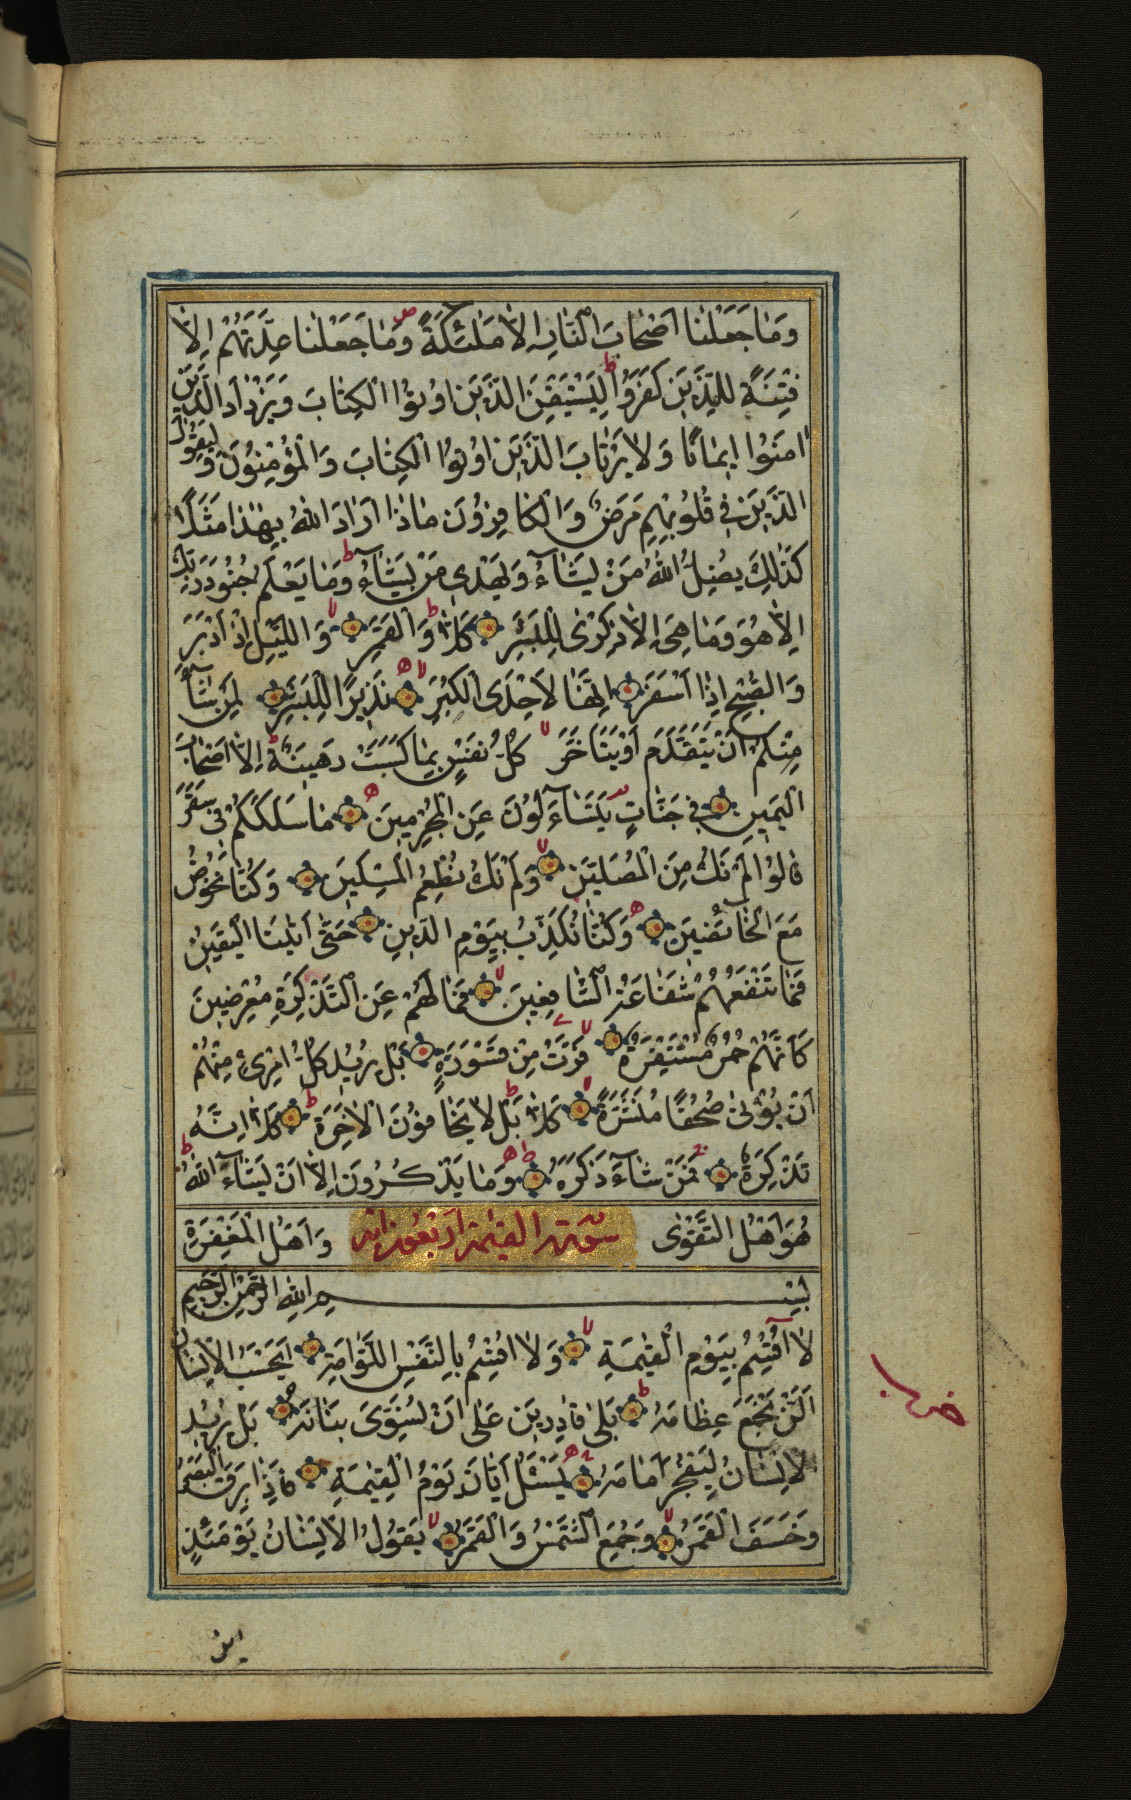 وَمٰا جَعَلْنٰا اَصْحٰابَ النّٰارِ اِلّٰا مَلٰئِكَةً وَمٰا جَعَلْنٰا عِدَّتَهُمْ اِلّٰا
فِتْنَةً لِلَّذِينَ كَفَرُوا لِيَسْتَيْقِنَ الَّذِينَ اُوتُوا الْكِتٰابَ وَيَزْدٰادَ الَّذِينَ
اٰمَنُوا اِيمٰانًا وَلٰا يَرْتٰابَ الَّذِينَ اُوتُوا الْكِتٰابَ وَالْمُؤْمِنُونَ وَلِيَقُولَ
الَّذِينَ فِي قُلُوبِهِمْ مَرَضٌ وَالْكٰافِرُونَ مٰاذٰا اَرٰادَ اللّٰهُ بِهٰذٰا مَثَلًا
كَذٰلِكَ يُضِلُّ اللّٰهُ مَنْ يَشٰآءُ وَيَهْدِي مَنْ يَشٰآءُ وَمٰا يَعْلَمُ جُنُودَ رَبِّكَ
اِلّٰا هُوَ وَمٰا هِيَ اِلّٰا ذِكْرٰى لِلْبَشَرِ كَلّٰا وَالْقَمَرِ وَالَّيْلِ اِذْ اَدْبَرَ
وَالصُّبْحِ اِذٰا اَسْفَرَ اِنَّهٰا لَاِحْدَى الْكُبَرِ نَذِيرًا لِلْبَشَرِ لِمَنْ شٰآءَ
مِنْكُمْ اَنْ يَتَقَدَّمَ اَوْ يَتَاَخَّرَ كُلُّ نَفْسٍ بِمٰا كَسَبَتْ رَهِينَةٌ اِلّٰا اَصْحٰابَ
الْيَمِينِ فِي جَنّٰاتٍ يَتَسٰآءَلُونَ عَنِ الْمُجْرِمِينَ مٰا سَلَكَكُمْ فِي سَقَرَ
قٰالُوا لَمْ نَكُ مِنَ الْمُصَلِّينَ وَلَمْ نَكُ نُطْعِمُ الْمِسْكِينَ وَكُنّٰا نَخُوضُ
مَعَ الْخٰآئِضِينَ وَكُنّٰا نُكَذِّبُ بِيَوْمِ الدِّينِ حَتّٰى اَتٰينَا الْيَقِينُ
فَمٰا تَنْفَعُهُمْ شَفٰاعَةُ الشّٰافِعِينَ فَمٰا لَهُمْ عَنِ التَّذْكِرَةِ مُعْرِضِينَ
كَاَنَّهُمْ حُمُرٌ مُسْتَنْفِرَةٌ فَرَّتْ مِنْ قَسْوَرَةٍ بَلْ يُرِيدُ كُلُّ امْرِئٍ مِنْهُمْ
اَنْ يُؤْتٰى صُحُفًا مُنَشَّرَةً كَلّٰا بَلْ لٰا يَخٰافُونَ الْاٰخِرَةَ كَلّٰا اِنَّهُ
تَذْكِرَةٌ فَمَنْ شٰآءَ ذَكَرَهُ وَمٰا يَذْكُرُونَ اِلّٰا اَنْ يَشٰآءَ اللّٰهُ
هُوَ اَهْلُ التَّقْوٰى سورة القيٰمة اربعون اية وَاَهْلُ الْمَغْفِرَةِ
بِسْمِ اللّٰهِ الرَّحْمٰنِ الرَّحِيمِ
لٰا اُقْسِمُ بِيَوْمِ الْقِيٰمَةِ وَلٰا اُقْسِمُ بِالنَّفْسِ اللَّوّٰامَةِ اَيَحْسَبُ الْاِنْسٰانُ
اَلَّنْ نَجْمَعَ عِظٰامَهُ بَلٰى قٰادِرِينَ عَلٰى اَنْ نُسَوِّيَ بَنٰانَهُ بَلْ يُرِيدُ
الْاِنْسٰانُ لِيَفْجُرَ اَمٰامَهُ يَسْئَلُ اَيّٰانَ يَوْمُ الْقِيٰمَةِ فَاِذٰا بَرِقَ الْبَصَرُ
وَخَسَفَ الْقَمَرُ وَجُمِعَ الشَّمْسُ وَالْقَمَرُ يَقُولُ الْاِنْسٰانُ يَوْمَئِذٍ
اين